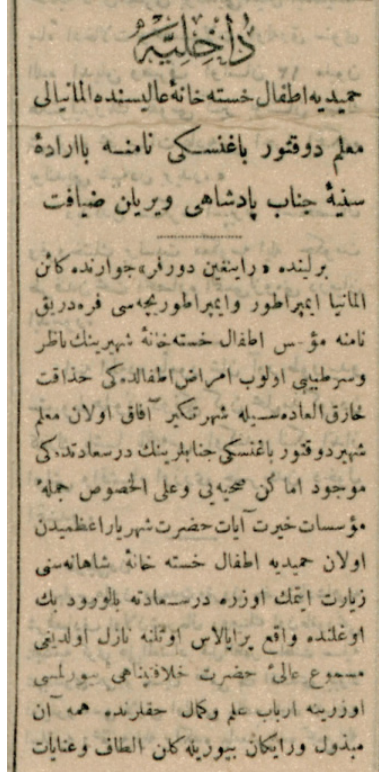 داخلیه
حمیدیه اطفال خسته خانهٔ عالیسنده المانیالی
معلم دوقتور باغنسکی نامنه باارادهٔ
سنیهٔ جناب پادشاهی ویریلن ضیافت
برلینده « راینغین دورفر» جوارنده کائن
المانیا ایمپراطور وایمپراطوریچه سی فره دریق
نامنه مؤسس اطفال خسته خانهٔ شهیرینك ناظر
وسرطبیبی اولوب امراض اطفالده کی حذاقت
خارق العاده سیله شهرتكیر آفاق اولان معلم
شهیر دوقتور باغنسکی جنابلرینك درسعادتده کی
موجود اماکن صحیه یی وعلی الخصوص جملهٔ
مؤسسات خیریت آیات حضرت شهریار اعظمیدن
اولان حمیدیه اطفال خسته خانهٔ شاهانه سنی
زیارت ایتمك اوزره درسعادته بالورود بك
اوغلنده واقع پراپالاس اوتلنه نازل اولدیغی
مسموع عالیٔ حضرت خلافتپناهی بیورلمسی
اوزرینه ارباب علم وکمال حقلرنده همه آن
مبذول ورایکان بیوریله کلن الطاف وعنایات